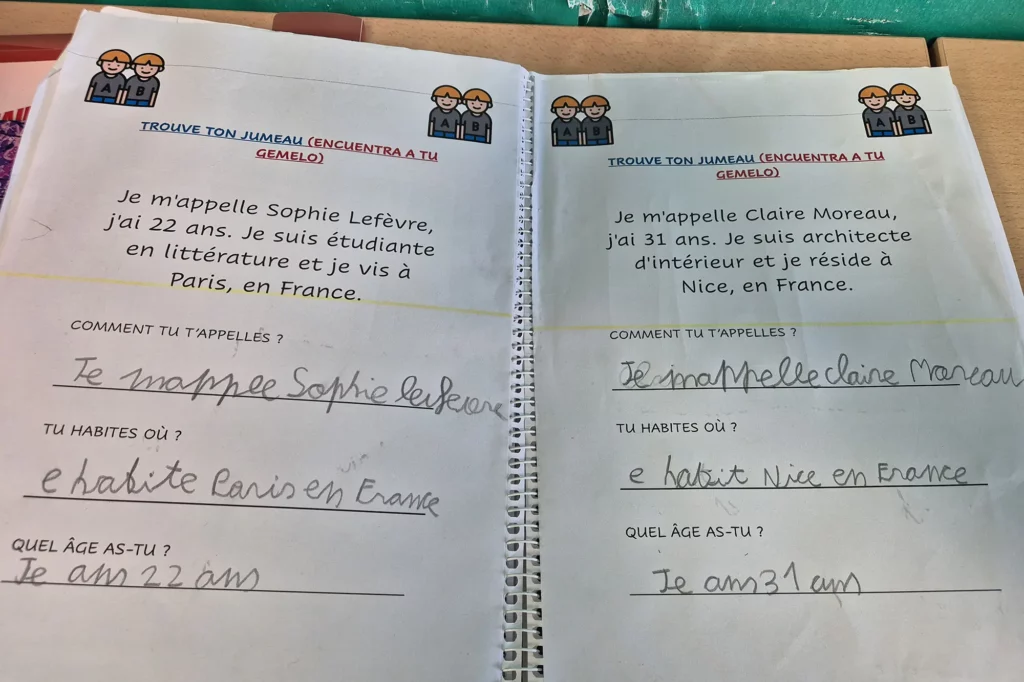 A B
A B
TROUVE TON JUMEAU (ENCUENTRA A TU
GEMELO)
Je m'appelle Sophie Lefèvre,
j'ai 22 ans. Je suis étudiante
en littérature et je vis à
Paris, en France.
COMMENT TU T'APPELLES ?
Je mappee Sophie lefevre
TU HABITES OÙ ?
e habite Paris en France
QUEL ÂGE AS-TU ?
Je ans 22 ans
A B
A B
TROUVE TON JUMEAU (ENCUENTRA A TU
GEMELO)
Je m'appelle Claire Moreau,
j'ai 31 ans. Je suis architecte
d'intérieur et je réside à
Nice, en France.
COMMENT TU T'APPELLES ?
Je mappelle claire Moreau
TU HABITES OÙ ?
e habit Nice en France
QUEL ÂGE AS-TU ?
Je ans 31 ans